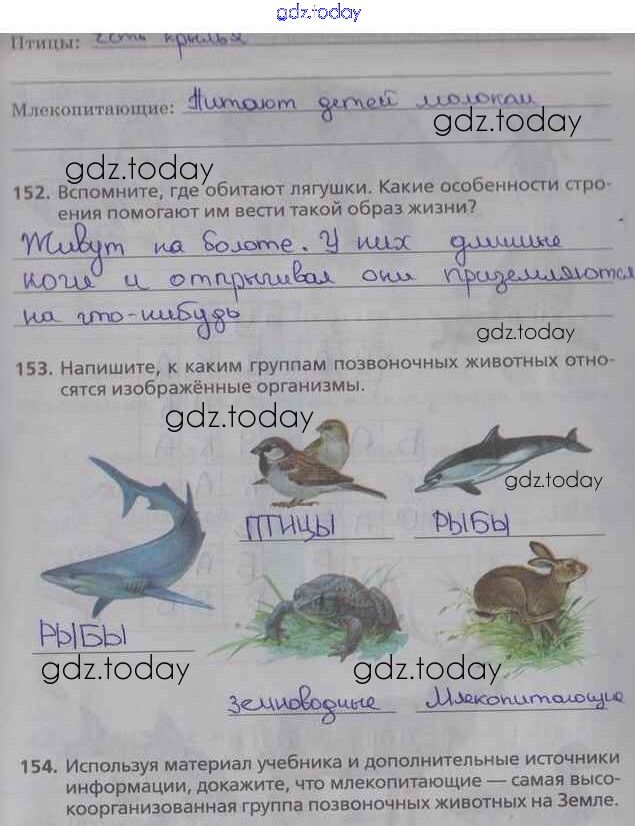 gdz.today
Птицы: есть крылья
Млекопитающие: Питают детей молоком
gdz.today
gdz.today
152. Вспомните, где обитают лягушки. Какие особенности стро-
ения помогают им вести такой образ жизни?
Живут на болоте. У них длинные
ноги и отпрыгивая они приземляются
на что-нибудь
gdz.today
153. Напишите, к каким группам позвоночных животных отно-
сятся изображённые организмы.
gdz.today
gdz.today
ПТИЦЫ РЫБЫ
РЫБЫ
gdz.today gdz.today
земноводные Млекопитающие
154. Используя материал учебника и дополнительные источники
информации, докажите, что млекопитающие — самая высо-
коорганизованная группа позвоночных животных на Земле.